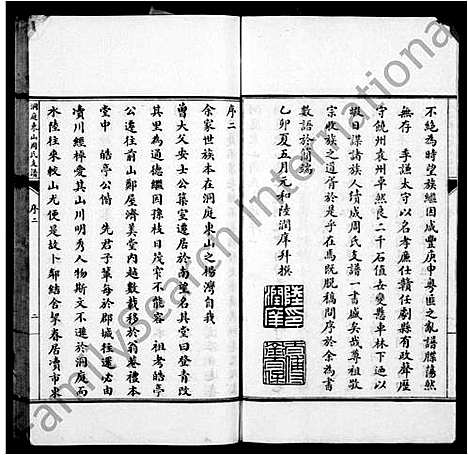 不絕為時望族繼因咸豐庚申粵匪之亂譜牒蕩然
無存　季謙太守以名孝廉仕贛任劇縣有政聲歷
守饒州袁州卓然良二千石值女變懸車林下迺以
暇日謀諸族人續成周氏支譜一書盛矣哉尊祖敬
宗收族之道胥於是乎在焉既脫稿問序於余為書
數語於簡端
乙卯夏五月元和陸潤庠拜撰
序二
余家世族本在洞庭東山之楊灣自我
曾大父安士公築室遷居於南望名其堂曰登青改
其里為通德繼因孫枝日茂宅不能容　祖考皓亭
公遷往前山鄰屋濟美堂內越數載移於翁巷禮本
堂中　皓亭公偕　先君子輩每於郡城往還必由
瀆川經棹愛其山川明秀人物斯文不遜於洞庭而
水陸往來較山尤便是故卜鄰結舍挈眷居瀆市東
洞庭東山周氏支譜
序二
二
familysearch international